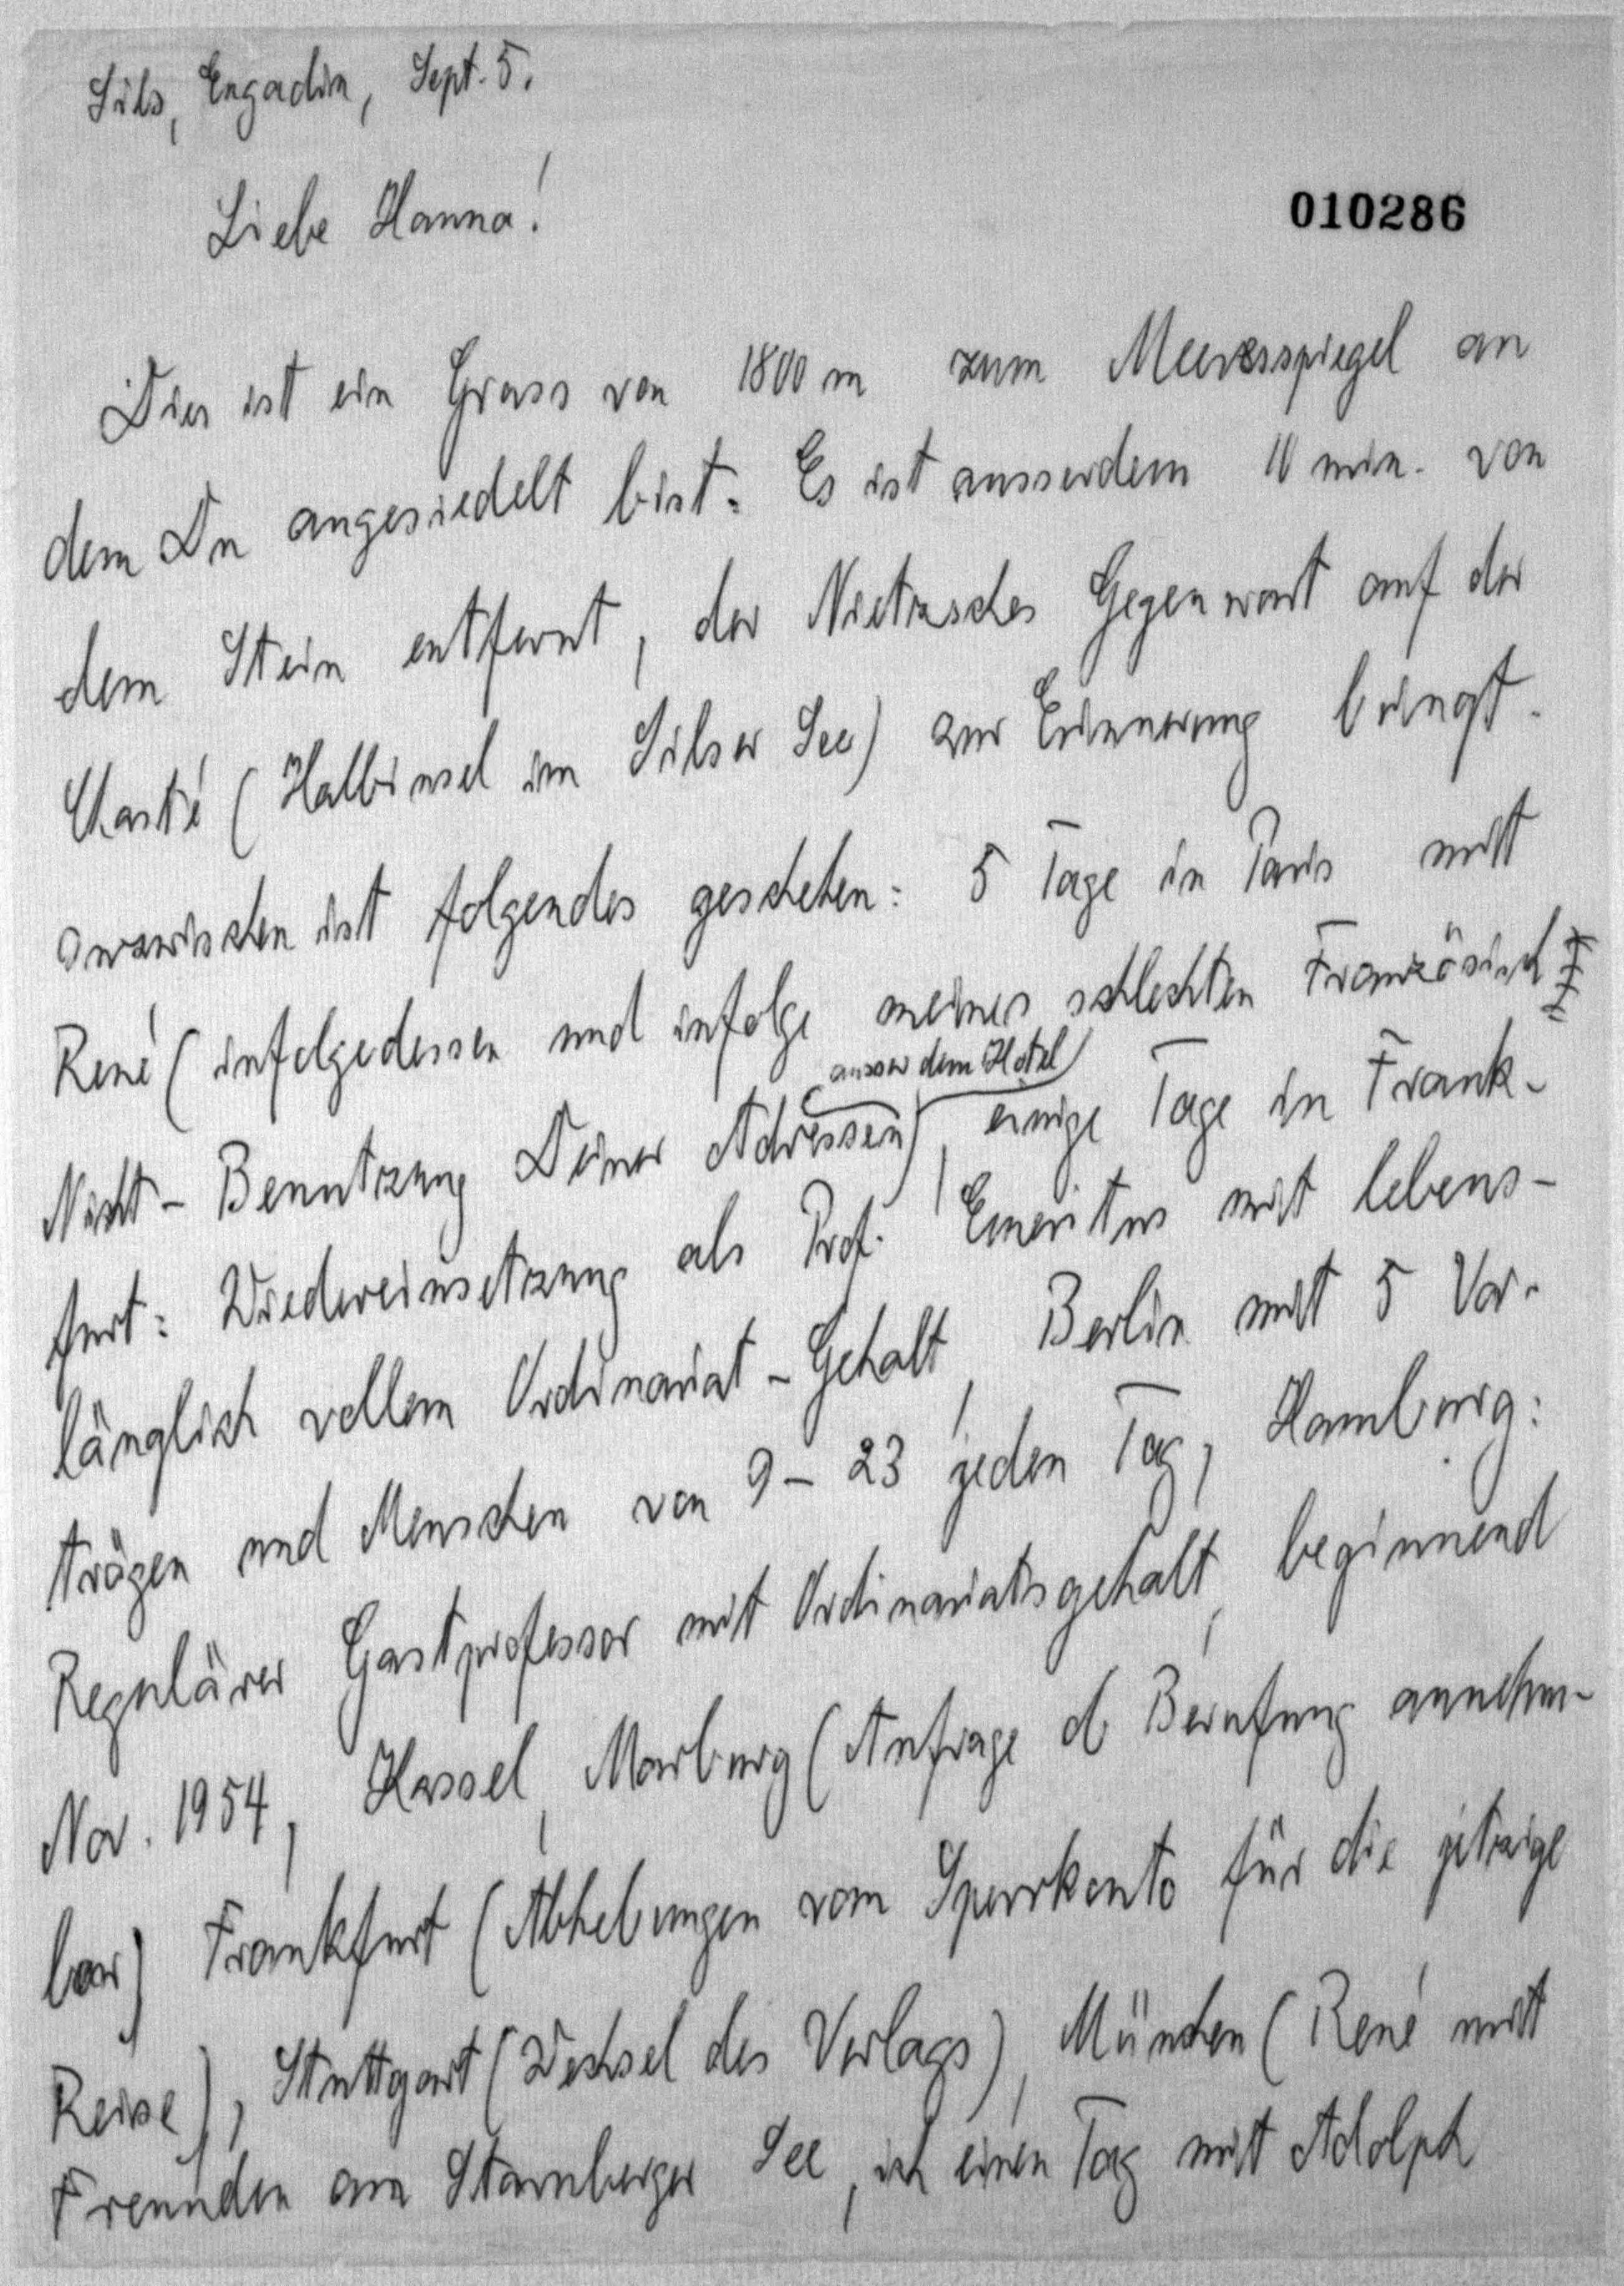 Sils, Engadin, Sept. 5.
Liebe Hanna!
010286
Dies ist ein Gruss von 1800 m zum Meeresspiegel an
dem Du angesiedelt bist. Es ist ausserdem 10 min. von
dem Stein entfernt, der Nietzsches Gegenwart auf der
Chasté (Halbinsel im Silser See) zur Erinnerung bringt.
Inzwischen ist folgendes geschehen: 5 Tage in Paris mit
René (infolgedessen und infolge meines schlechten Französisch
ausser dem Hotel
Nicht-Benutzung Deiner Adressen), einige Tage in Frank-
furt: Wiedereinsetzung als Prof. Emeritus mit lebens-
länglich vollem Ordinariat-Gehalt, Berlin mit 5 Vor-
trägen und Menschen von 9-23 jeden Tag, Hamburg:
Regulärer Gastprofessor mit Ordinariatsgehalt, beginnend
Nov. 1954, Kassel, Marburg (Anfrage ob Berufung annehm-
bar) Frankfurt (Abhebungen vom Sperrkonto für die jetzige
Reise), Stuttgart (Wechsel des Verlags), München (René mit
Freunden am Starnberger See, ich einen Tag mit Adolph